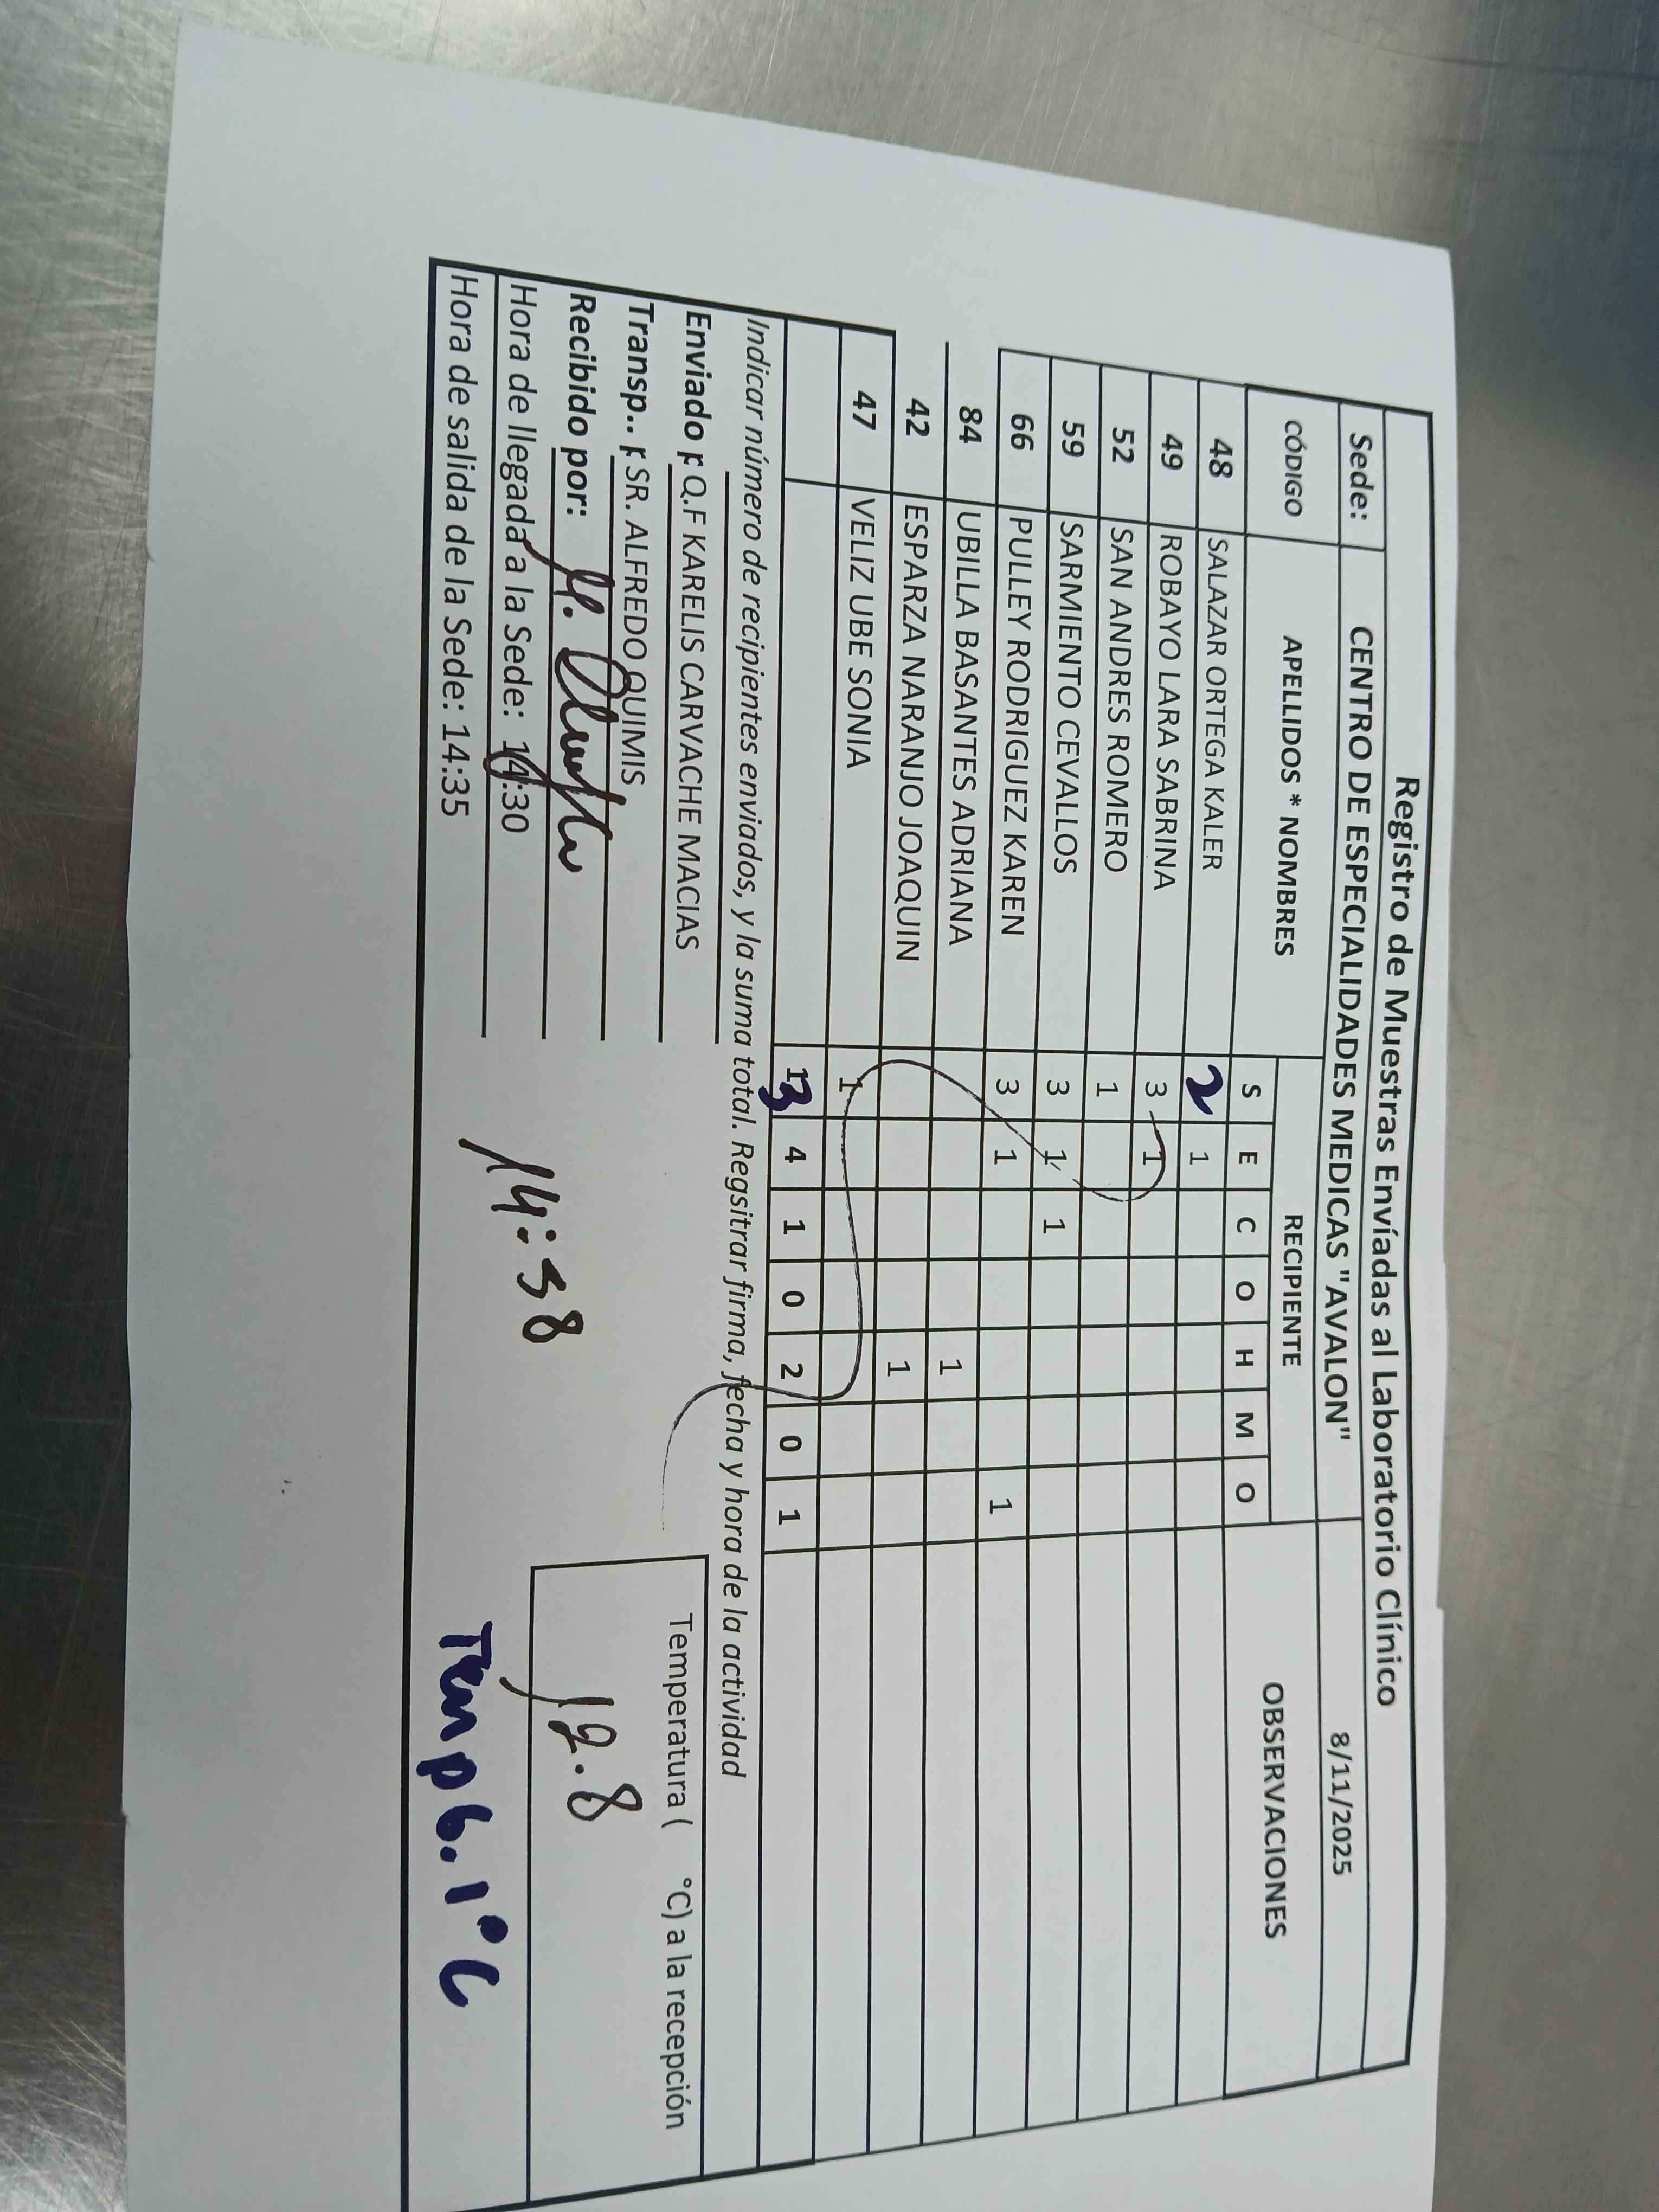 Registro de Muestras Envíadas al Laboratorio Clínico
Sede: CENTRO DE ESPECIALIDADES MEDICAS "AVALON" 8/11/2025
CÓDIGO APELLIDOS * NOMBRES RECIPIENTE OBSERVACIONES
S E C O H M O
48 SALAZAR ORTEGA KALER 2 1
49 ROBAYO LARA SABRINA 3 1
52 SAN ANDRES ROMERO 1
59 SARMIENTO CEVALLOS 3 1 1
66 PULLEY RODRIGUEZ KAREN 3 1 1
84 UBILLA BASANTES ADRIANA 1
42 ESPARZA NARANJO JOAQUIN 1
47 VELIZ UBE SONIA 1
13 4 1 0 2 0 1
Indicar número de recipientes enviados, y la suma total. Regsitrar firma, fecha y hora de la actividad
Enviado p Q.F KARELIS CARVACHE MACIAS
Temperatura ( °C) a la recepción
Transp.. p SR. ALFREDO QUIMIS
Recibido por:
12.8
Hora de llegada a la Sede: 14:30
14:38
Hora de salida de la Sede: 14:35
Temp 6.1°C